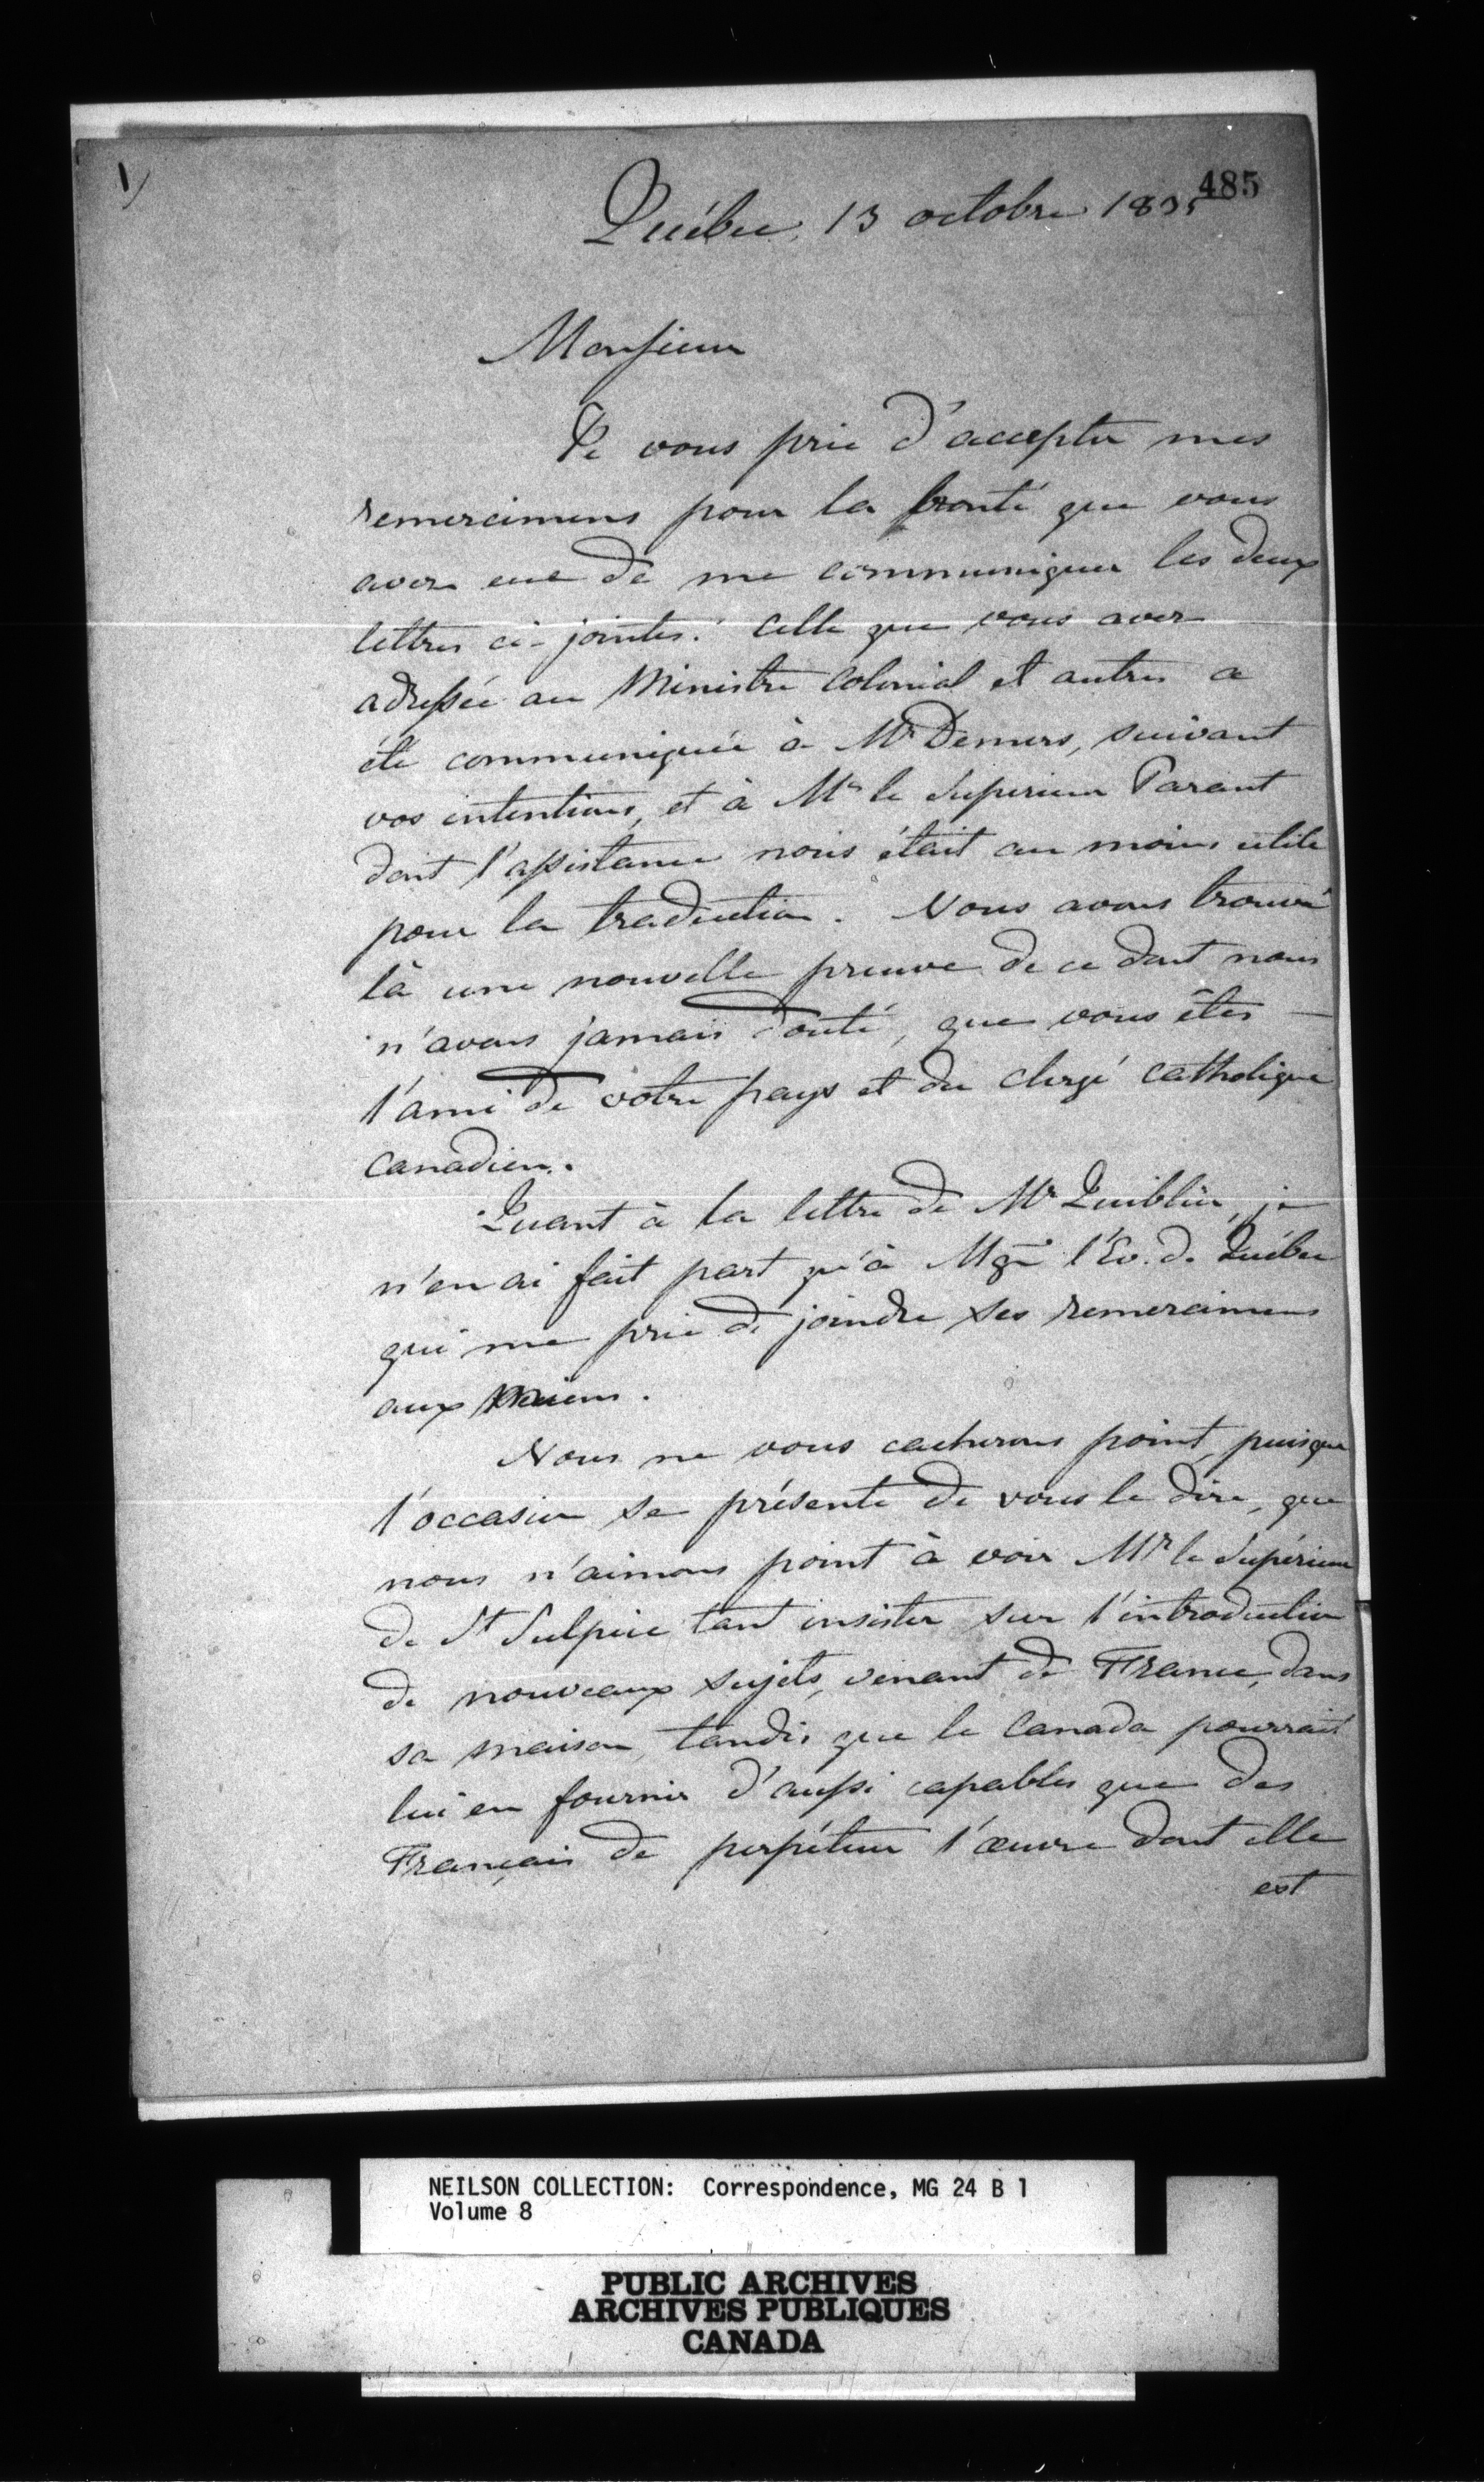 1)
485
Québec, 13 octobre 1835
Monsieur
Je vous prie d'accepter mes
remercimens pour la bonté que vous
avez eue de me communiquer les deux
lettres ci-jointes. Celle que vous avez
adressée au Ministre Colonial et autres a
été communiquée à Mr Demers, suivant
vos intentions, et à Mr le Supérieur Parant
dont l'assistance nous était au moins utile
pour la traduction. Nous avons trouvé
là une nouvelle preuve de ce dont nous
n'avons jamais douté, que vous êtes
l'ami de votre pays et du clergé catholique
canadien.
Quant à la lettre de Mr Quiblier, je
n'en ai fait part qu'à Mgr l'Ev. de Québec
qui me prie de joindre ses remercimens
aux miens.
Nous ne vous cacherons point, puisque
l'occasion se présente de vous le dire, que
nous n'aimons point à voir Mr le Supérieur
de St Sulpice tant insister sur l'introduction
de nouveaux sujets, venant de France, dans
sa maison, tandis que le Canada pourrait
lui en fournir d'aussi capables que des
Français de perpétuer l'œuvre dont elle
est
NEILSON COLLECTION: Correspondence, MG 24 B 1
Volume 8
PUBLIC ARCHIVES
ARCHIVES PUBLIQUES
CANADA